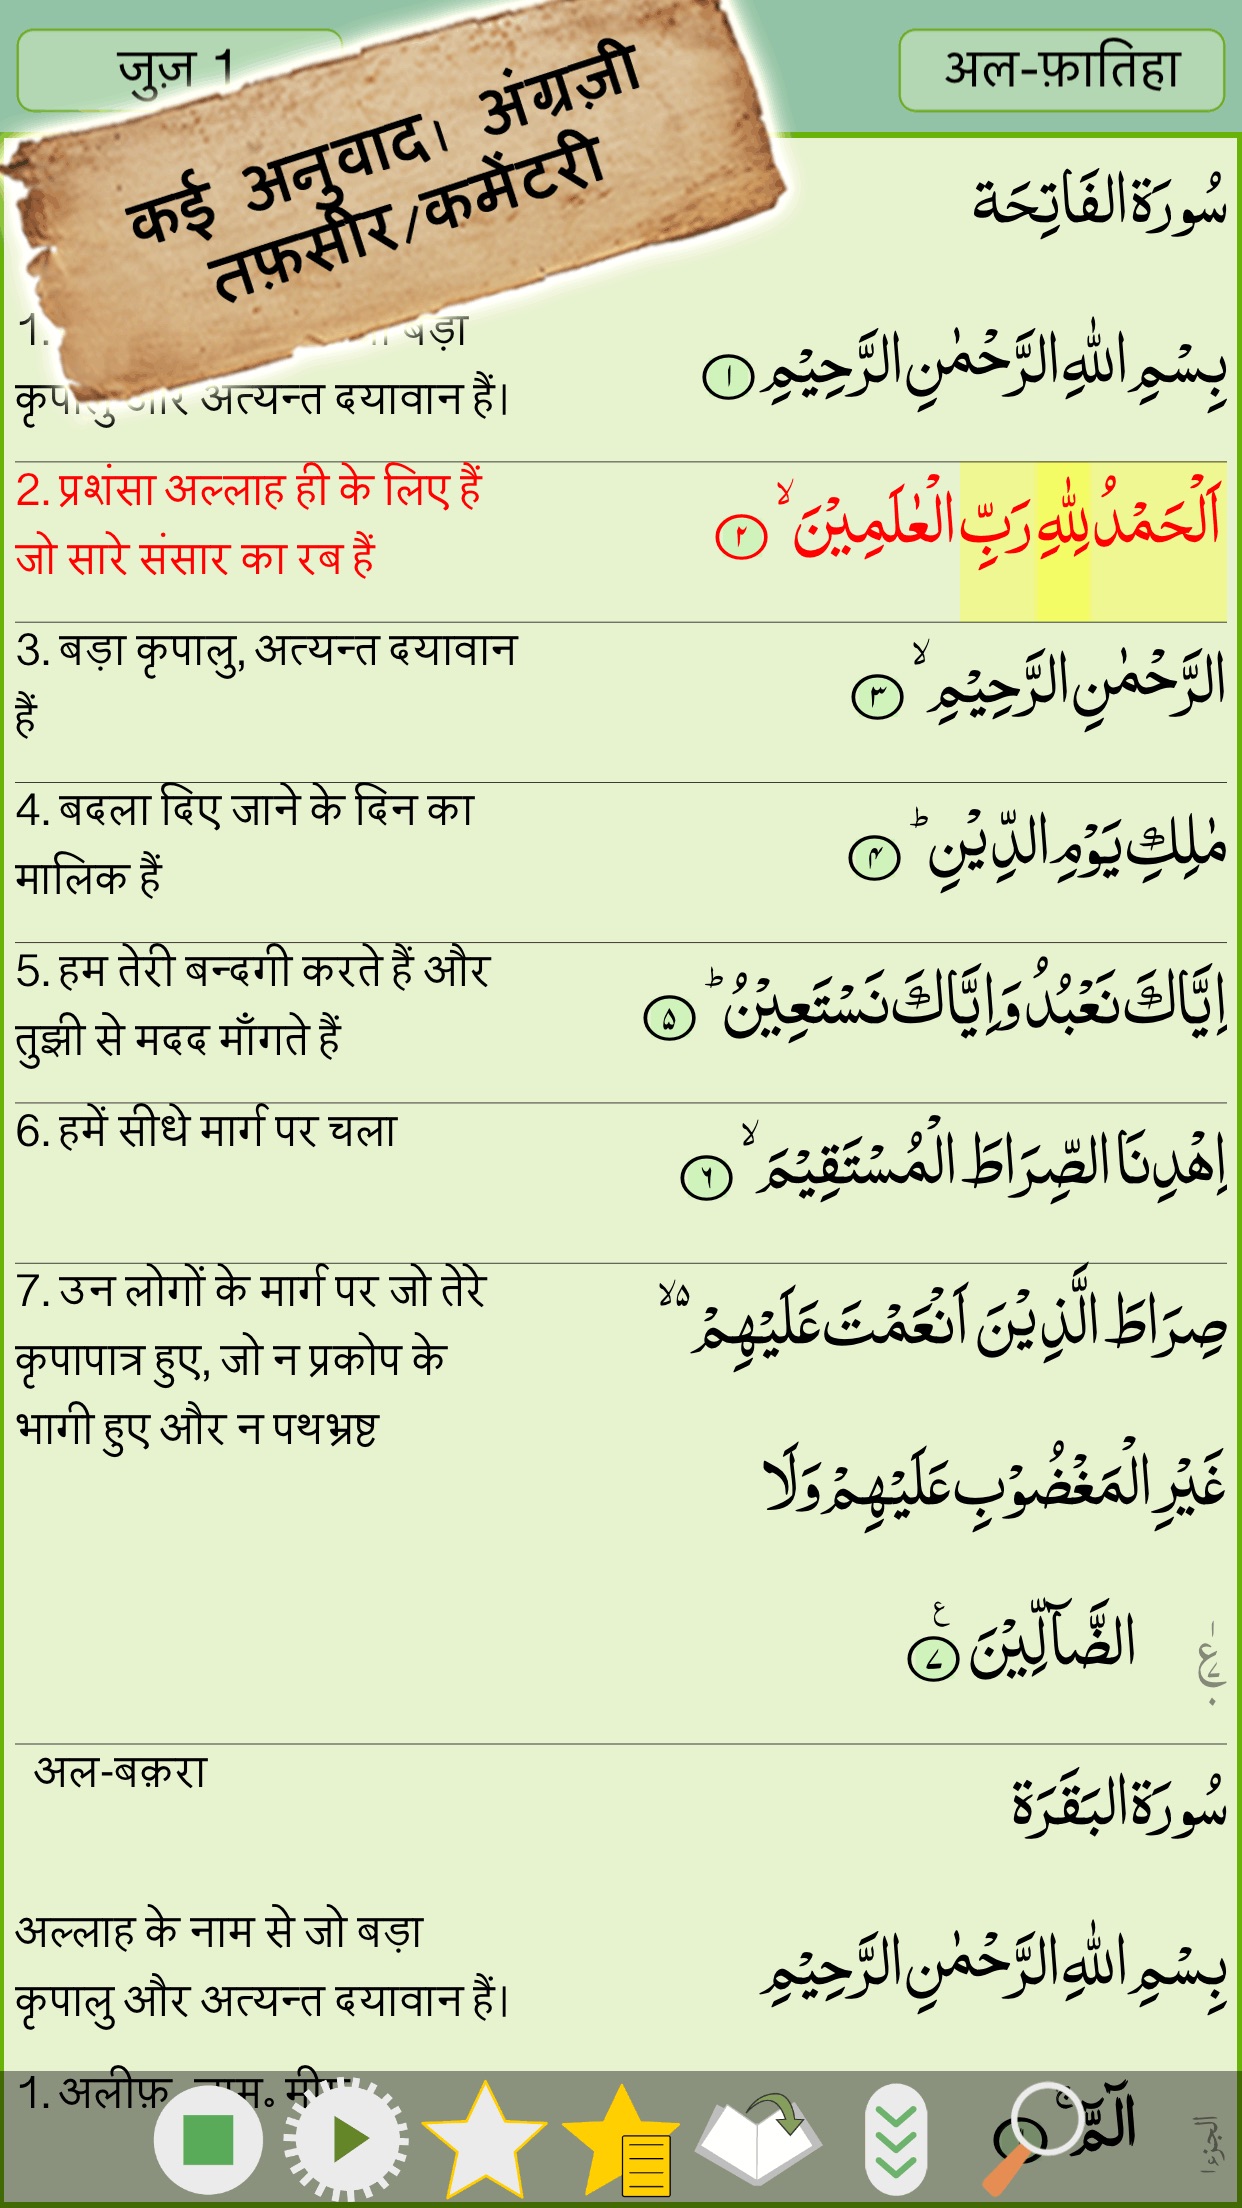 जुज़ 1
अल-फ़ातिहा
कई अनुवाद। अंग्रज़ी
तफ़सीर/कमेंटरी
سُورَةُ الفَاتِحَة
1. बड़ा
कृपालु और अत्यन्त दयावान हैं।
بِسْمِ اللّٰهِ الرَّحْمٰنِ الرَّحِيْمِ ۝١
2. प्रशंसा अल्लाह ही के लिए हैं
जो सारे संसार का रब हैं
اَلْحَمْدُ لِلّٰهِ رَبِّ الْعٰلَمِيْنَ ۙ ۝٢
3. बड़ा कृपालु, अत्यन्त दयावान
हैं
الرَّحْمٰنِ الرَّحِيْمِ ۙ ۝٣
4. बदला दिए जाने के दिन का
मालिक हैं
مٰلِكِ يَوْمِ الدِّيْنِ ؕ ۝۴
5. हम तेरी बन्दगी करते हैं और
तुझी से मदद माँगते हैं
اِيَّاكَ نَعْبُدُ وَاِيَّاكَ نَسْتَعِيْنُ ؕ ۝۵
6. हमें सीधे मार्ग पर चला
اِهْدِنَا الصِّرَاطَ الْمُسْتَقِيْمَ ۙ ۝۶
7. उन लोगों के मार्ग पर जो तेरे
कृपापात्र हुए, जो न प्रकोप के
भागी हुए और न पथभ्रष्ट
صِرَاطَ الَّذِيْنَ اَنْعَمْتَ عَلَيْهِمْ ۙ۵
غَيْرِ الْمَغْضُوْبِ عَلَيْهِمْ وَلَا
الضَّآلِّيْنَ ۝٧ ع
अल-बक़रा
سُورَةُ البَقَرَة
अल्लाह के नाम से जो बड़ा
कृपालु और अत्यन्त दयावान हैं।
بِسْمِ اللّٰهِ الرَّحْمٰنِ الرَّحِيْمِ
1. अलीफ़॰
الٓمّٓ